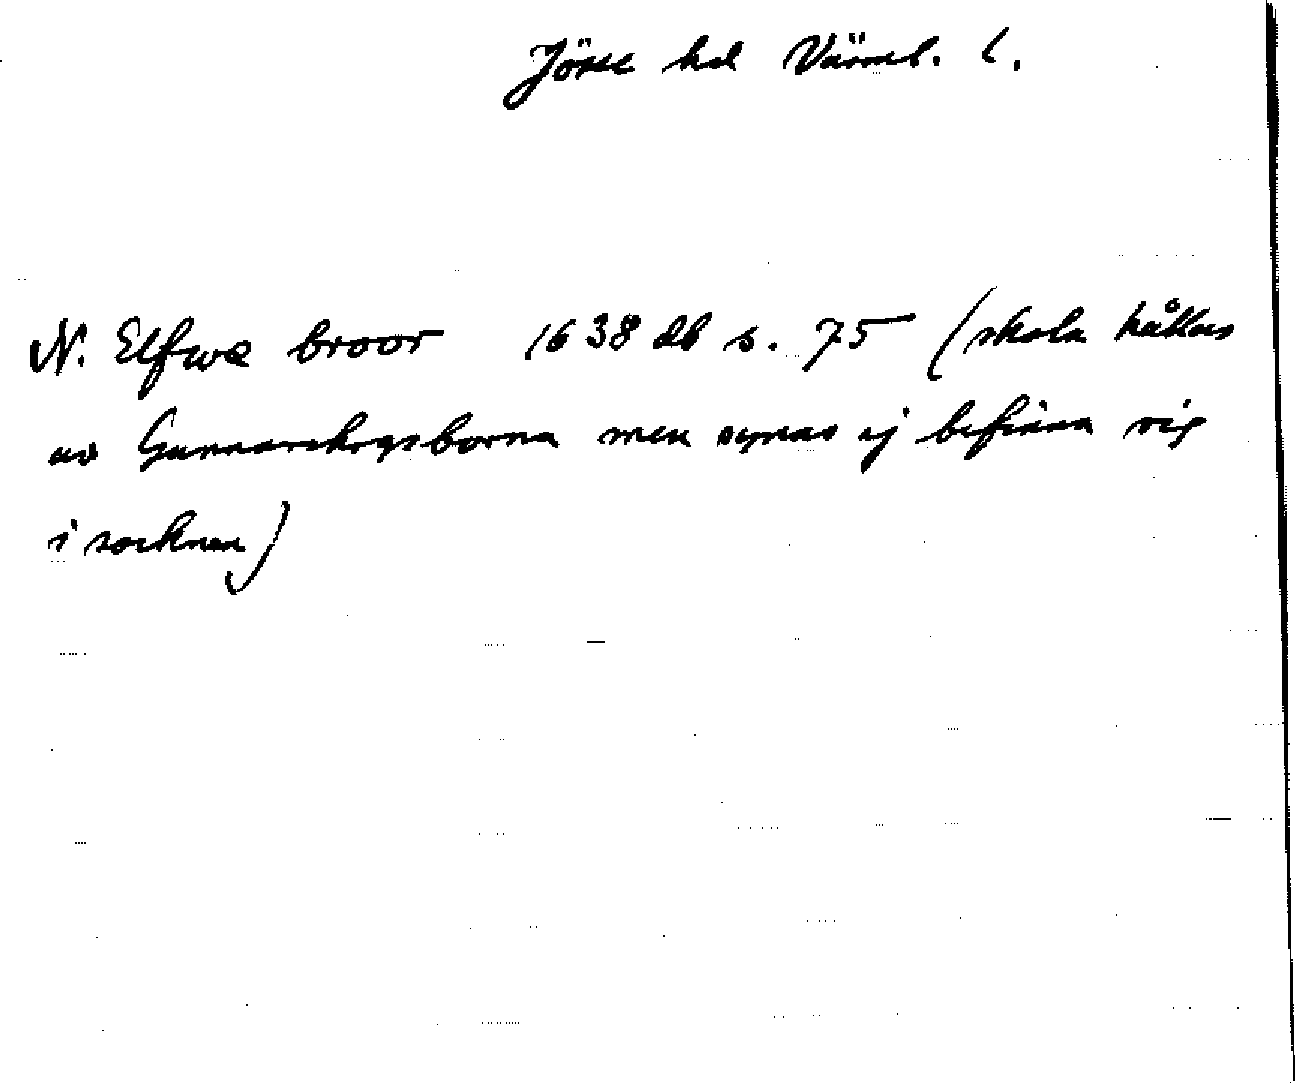 Jösse hd Värml. l.
N. Elfwe broor 1638 db s. 75 (skola hållas
av Gunnarskogsborna men synas ej befinna sig
i socknen)